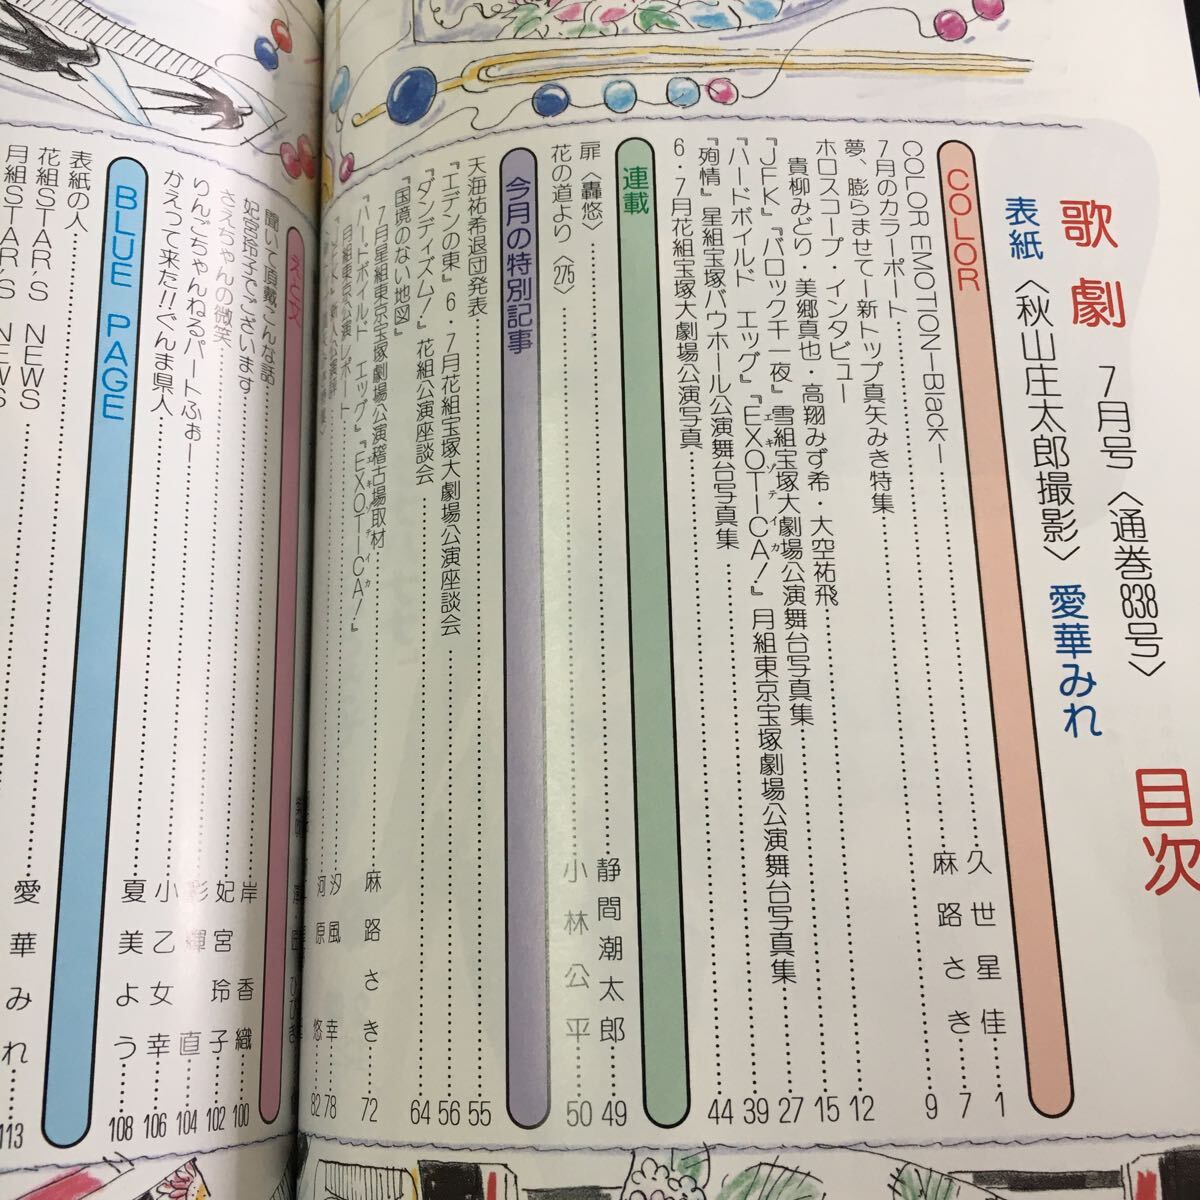 歌劇 7月号〈通巻838号〉 目次
表紙〈秋山庄太郎撮影〉愛華みれ
COLOR
COLOR EMOTION―Black―……久世星佳……1
7月のカラーポート……麻路さき……7
夢、膨らませて―新トップ真矢みき特集……9
ホロスコープ・インタビュー
貴柳みどり・美郷真也・高翔みず希・大空祐飛……12
『JFK』『バロック千一夜』雪組宝塚大劇場公演舞台写真集……15
『ハードボイルド エッグ』『EXOTICA!』月組東京宝塚劇場公演舞台写真集……27
エキゾチカ
『殉情』星組宝塚バウホール公演舞台写真集……39
6・7月花組宝塚大劇場公演写真……44
連載
扉〈轟悠〉……静間潮太郎……49
花の道より〈275〉……小林公平……50
今月の特別記事
天海祐希退団発表……55
『エデンの東』6・7月花組宝塚大劇場公演座談会……56
『ダンディズム!』花組公演座談会……64
『国境のない地図』
7月星組東京宝塚劇場公演稽古場取材……麻路さき……72
『ハードボイルド エッグ』『EXOTICA!』
エキゾチカ
月組東京公演レポート……汐風幸……78
河原悠……82
えと文
聞いて頂戴こんな話……岸香織……100
妃宮玲子でございます……妃宮玲子……102
さえちゃんの微笑……彩輝直……104
りんごちゃんねるパートふぉー……小乙女幸……106
かえって来た!!ぐんま県人……夏美よう……108
BLUE PAGE
表紙の人……愛華みれ……113
花組STAR'S NEWS
月組STAR'S NEWS